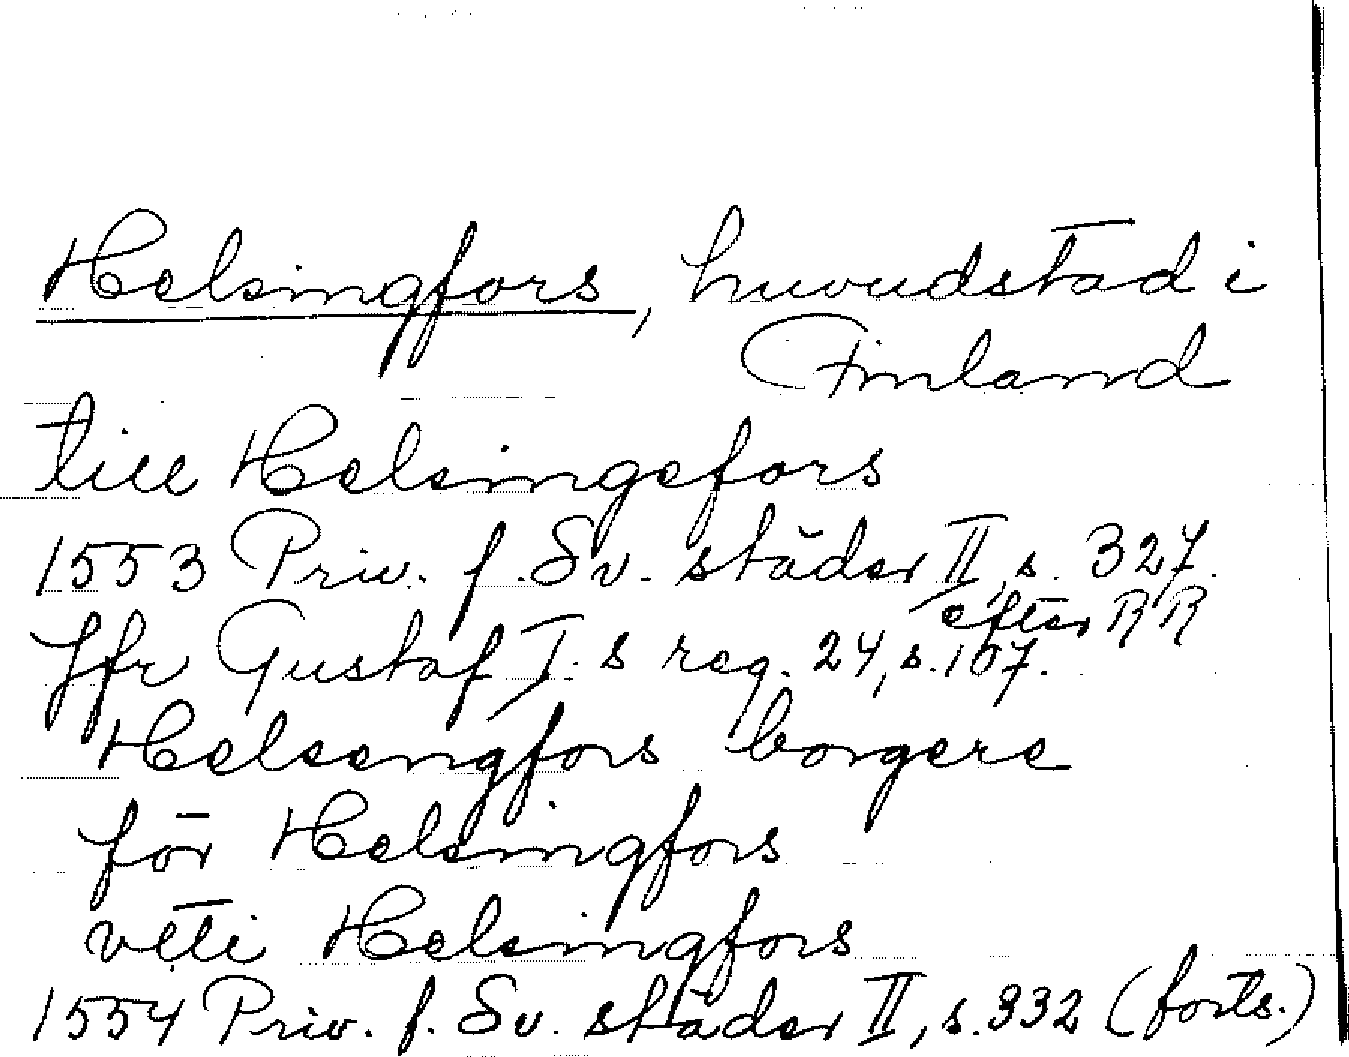 Helsingfors, huvudstad i
Finland
till Helsingefors
1553 Priv. f. Sv. städer II, s. 327.
efter RR
Jfr Gustaf I.s reg. 24, s. 107.
Helsengfors borgere
för Helsingfors
vtti Helsingfors
1554 Priv. f. Sv. städer II, s. 332 (forts.)